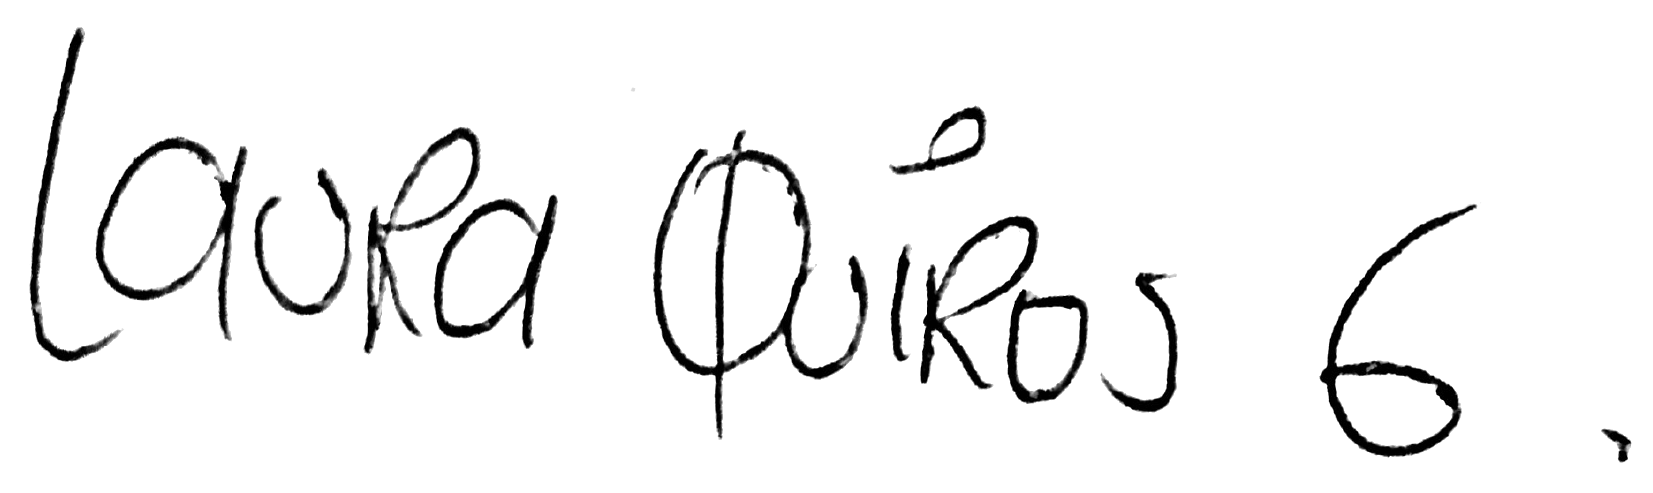 Laura Quirós G.